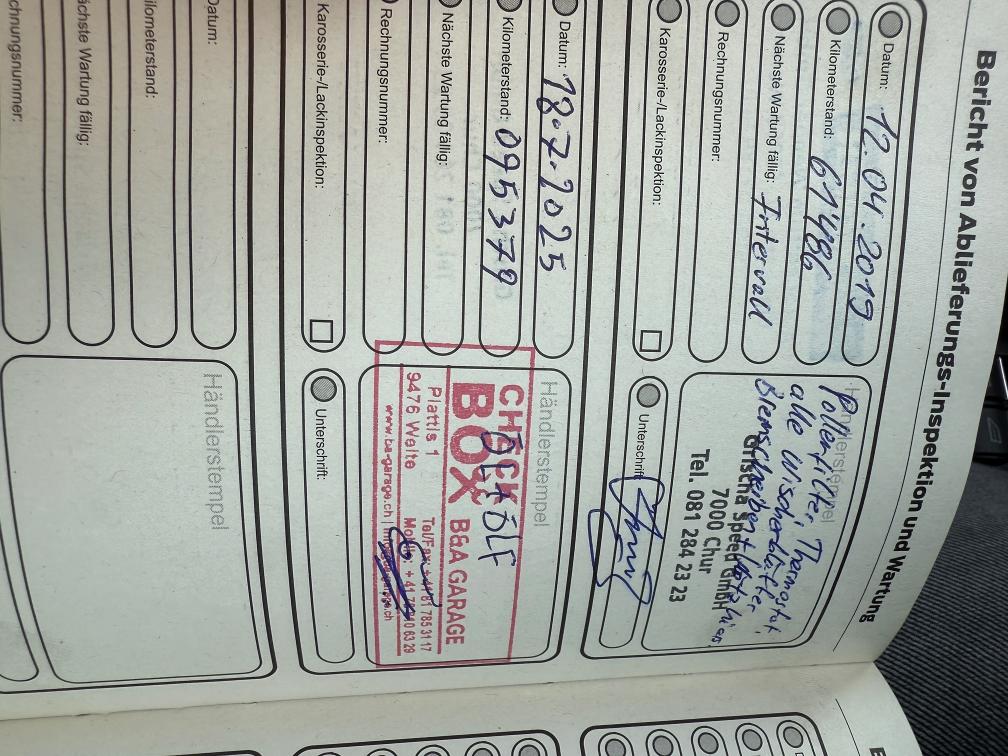 Bericht von Ablieferungs-Inspektion und Wartung
Datum: 12.04.2019
Kilometerstand: 61'486
Nächste Wartung fällig: Intervall
Rechnungsnummer:
Karosserie-/Lackinspektion:
Händlerstempel
Pollenfilter, Thermostat
alle Wischerblätter
Bremsscheiben +
Speed GmbH
7000 Chur
Tel. 081 284 23 23
Unterschrift:
Datum: 18.7.2025
Kilometerstand: 095379
Nächste Wartung fällig:
Rechnungsnummer:
Karosserie-/Lackinspektion:
Händlerstempel
CHECK
BOX B&A GARAGE
ÖL + ÖLF
Plattis 1 Tel/Fax +41 81 785 31 17
9476 Weite Mobile: +41
www.ba-garage.ch |
Unterschrift:
Datum:
Kilometerstand:
Nächste Wartung fällig:
Rechnungsnummer:
Händlerstempel